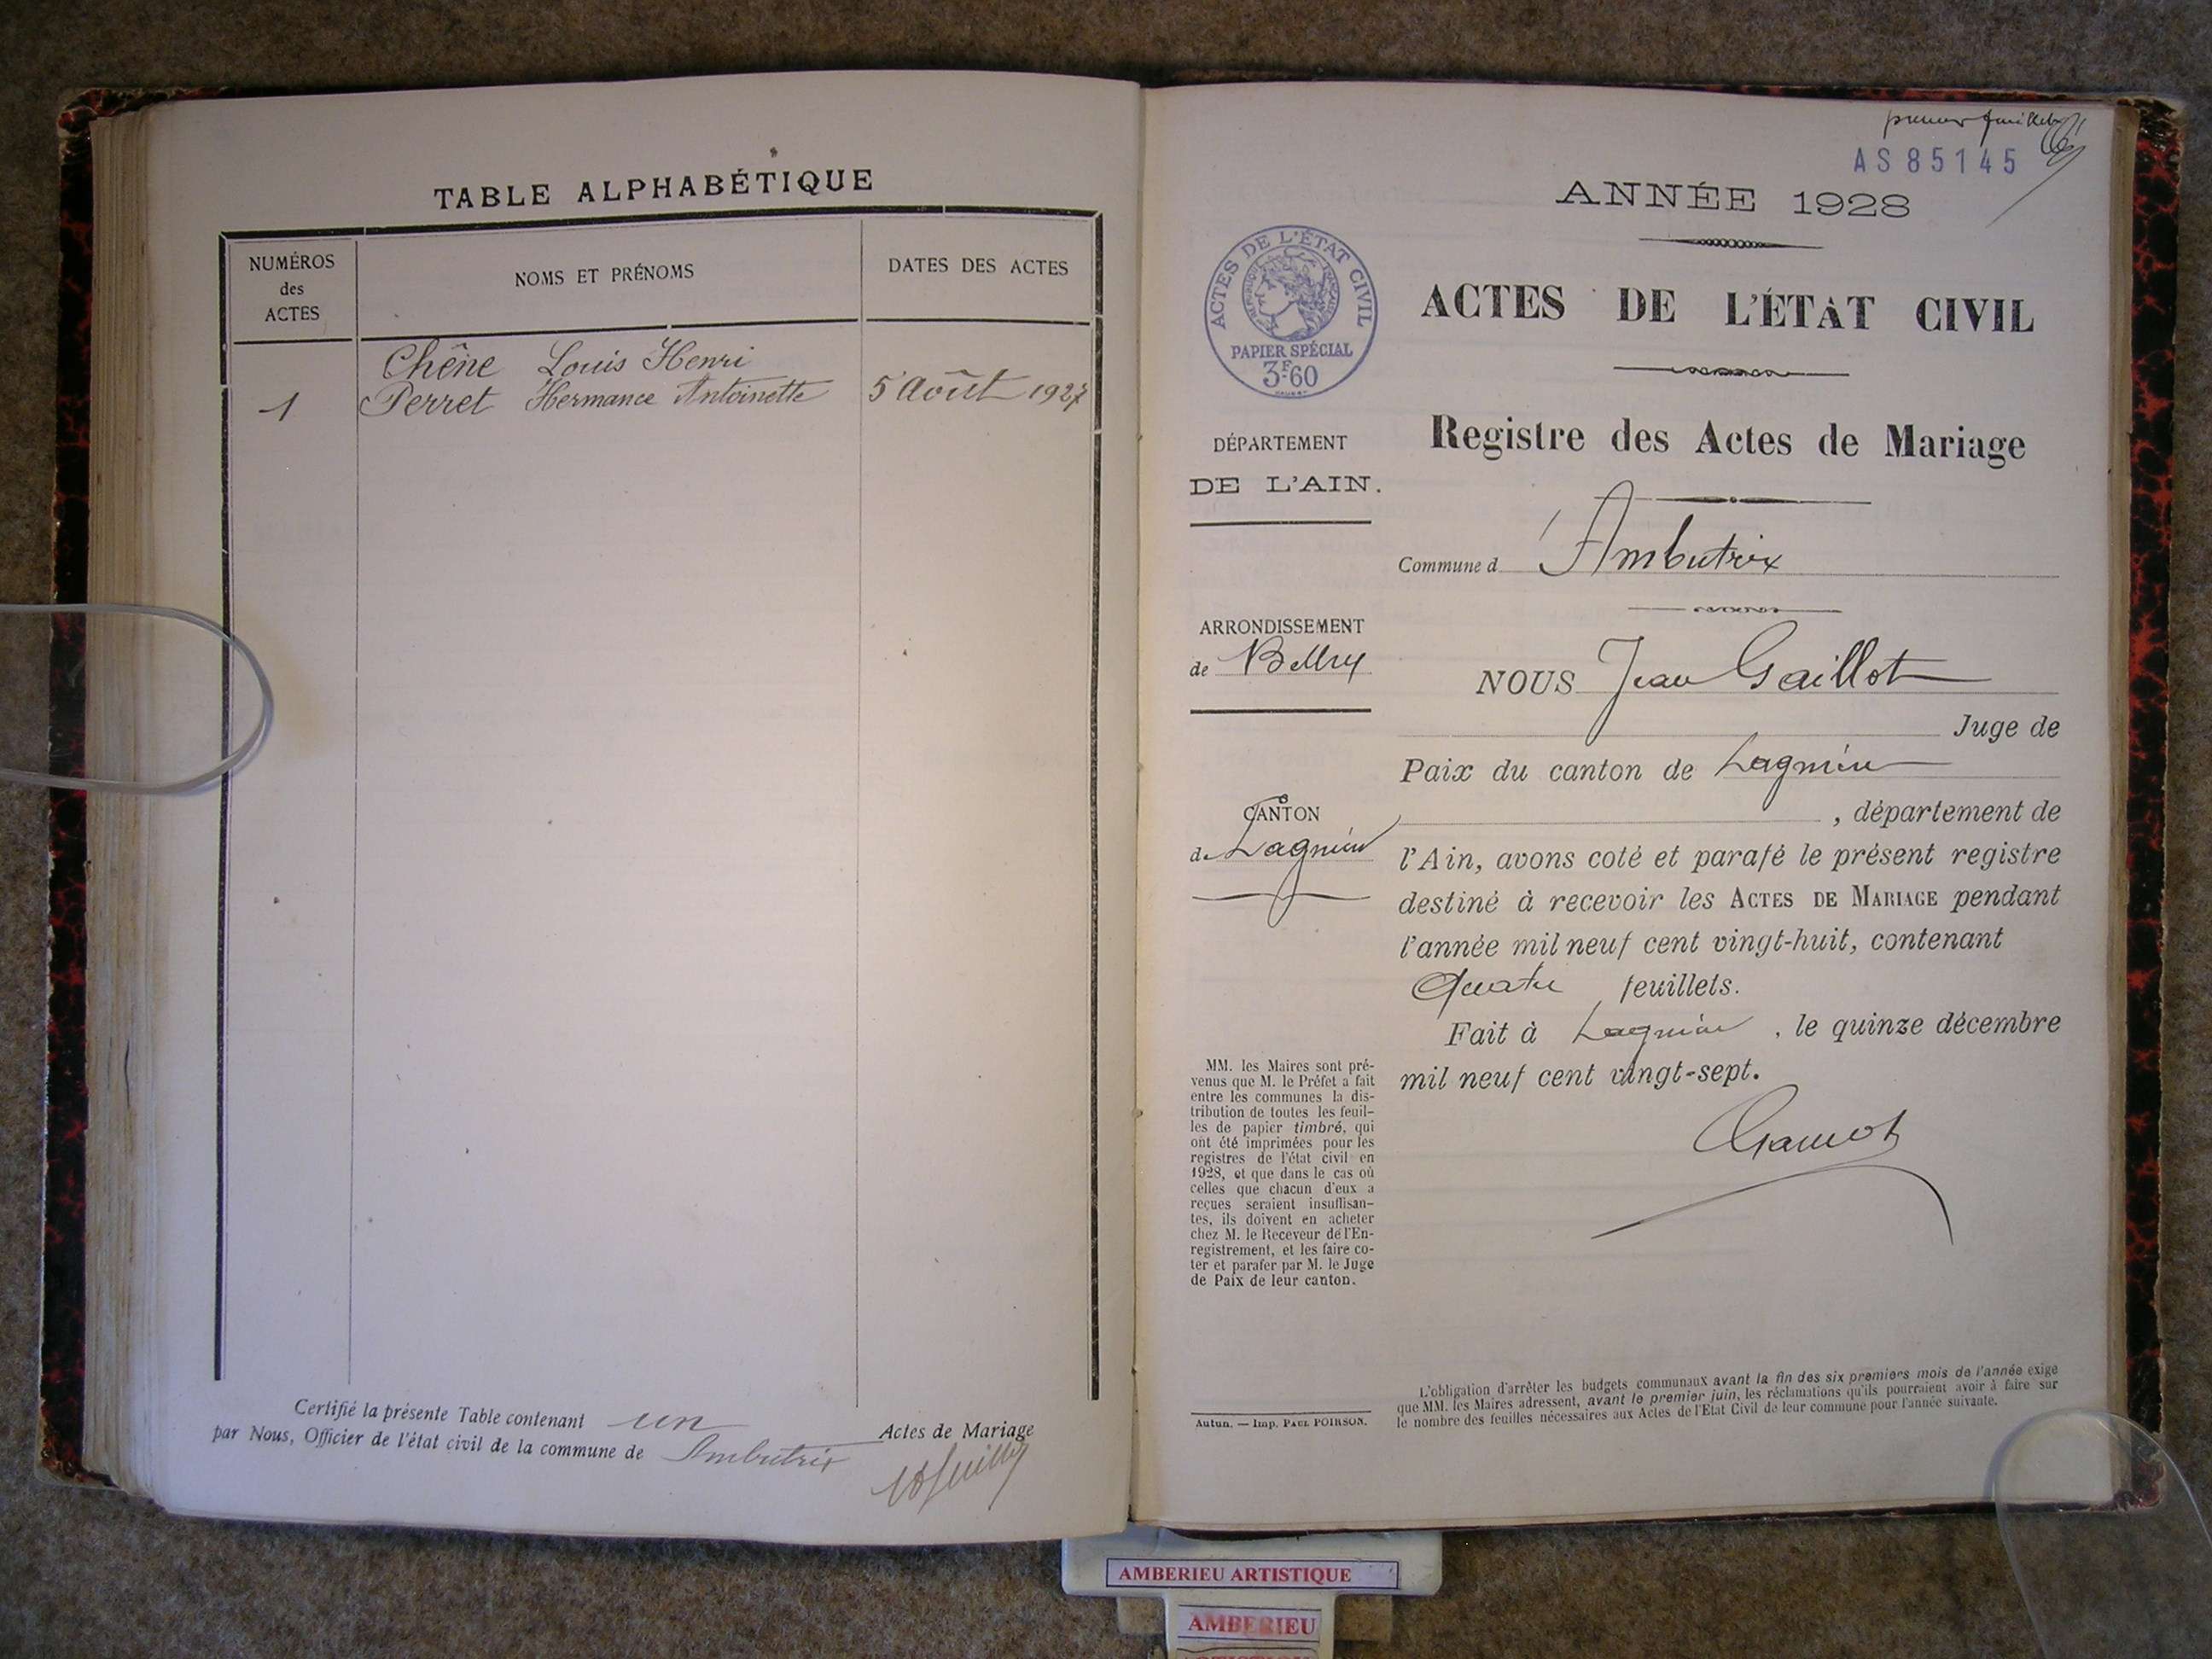 TABLE ALPHABÉTIQUE
NUMÉROS
des
ACTES
NOMS ET PRÉNOMS
DATES DES ACTES
Chêne Louis Henri
1 Perret Hermance Antoinette 5 Août 1927
Certifié la présente Table contenant un Actes de Mariage
par Nous, Officier de l'état civil de la commune de Ambutrix
premier feuillet
AS 85145
ANNÉE 1928
ACTES DE L'ÉTAT CIVIL
RÉPUBLIQUE FRANÇAISE
PAPIER SPÉCIAL
3F60
ACTES DE L'ÉTAT CIVIL
Registre des Actes de Mariage
DÉPARTEMENT
DE L'AIN.
Commune d Ambutrix
ARRONDISSEMENT
de Belley
NOUS Jean Gaillot
Juge de
Paix du canton de Lagnieu
CANTON
de Lagnieu
, département de
l'Ain, avons coté et parafé le présent registre
destiné à recevoir les ACTES DE MARIAGE pendant
l'année mil neuf cent vingt-huit, contenant
Quatre feuillets.
Fait à Lagnieu, le quinze décembre
mil neuf cent vingt-sept.
MM. les Maires sont pré-
venus que M. le Préfet a fait
entre les communes la dis-
tribution de toutes les feuil-
les de papier timbré, qui
ont été imprimées pour les
registres de l'état civil en
1928, et que dans le cas où
celles que chacun d'eux a
reçues seraient insuffisan-
tes, ils doivent en acheter
chez M. le Receveur de l'En-
registrement, et les faire co-
ter et parafer par M. le Juge
de Paix de leur canton.
Autun. — Imp. PAUL POIRSON.
L'obligation d'arrêter les budgets communaux avant la fin des six premiers mois de l'année exige
que MM. les Maires adressent, avant le premier juin, les réclamations qu'ils pourraient avoir à faire sur
le nombre des feuilles nécessaires aux Actes de l'Etat Civil de leur commune pour l'année suivante.
AMBERIEU ARTISTIQUE
AMBERIEU